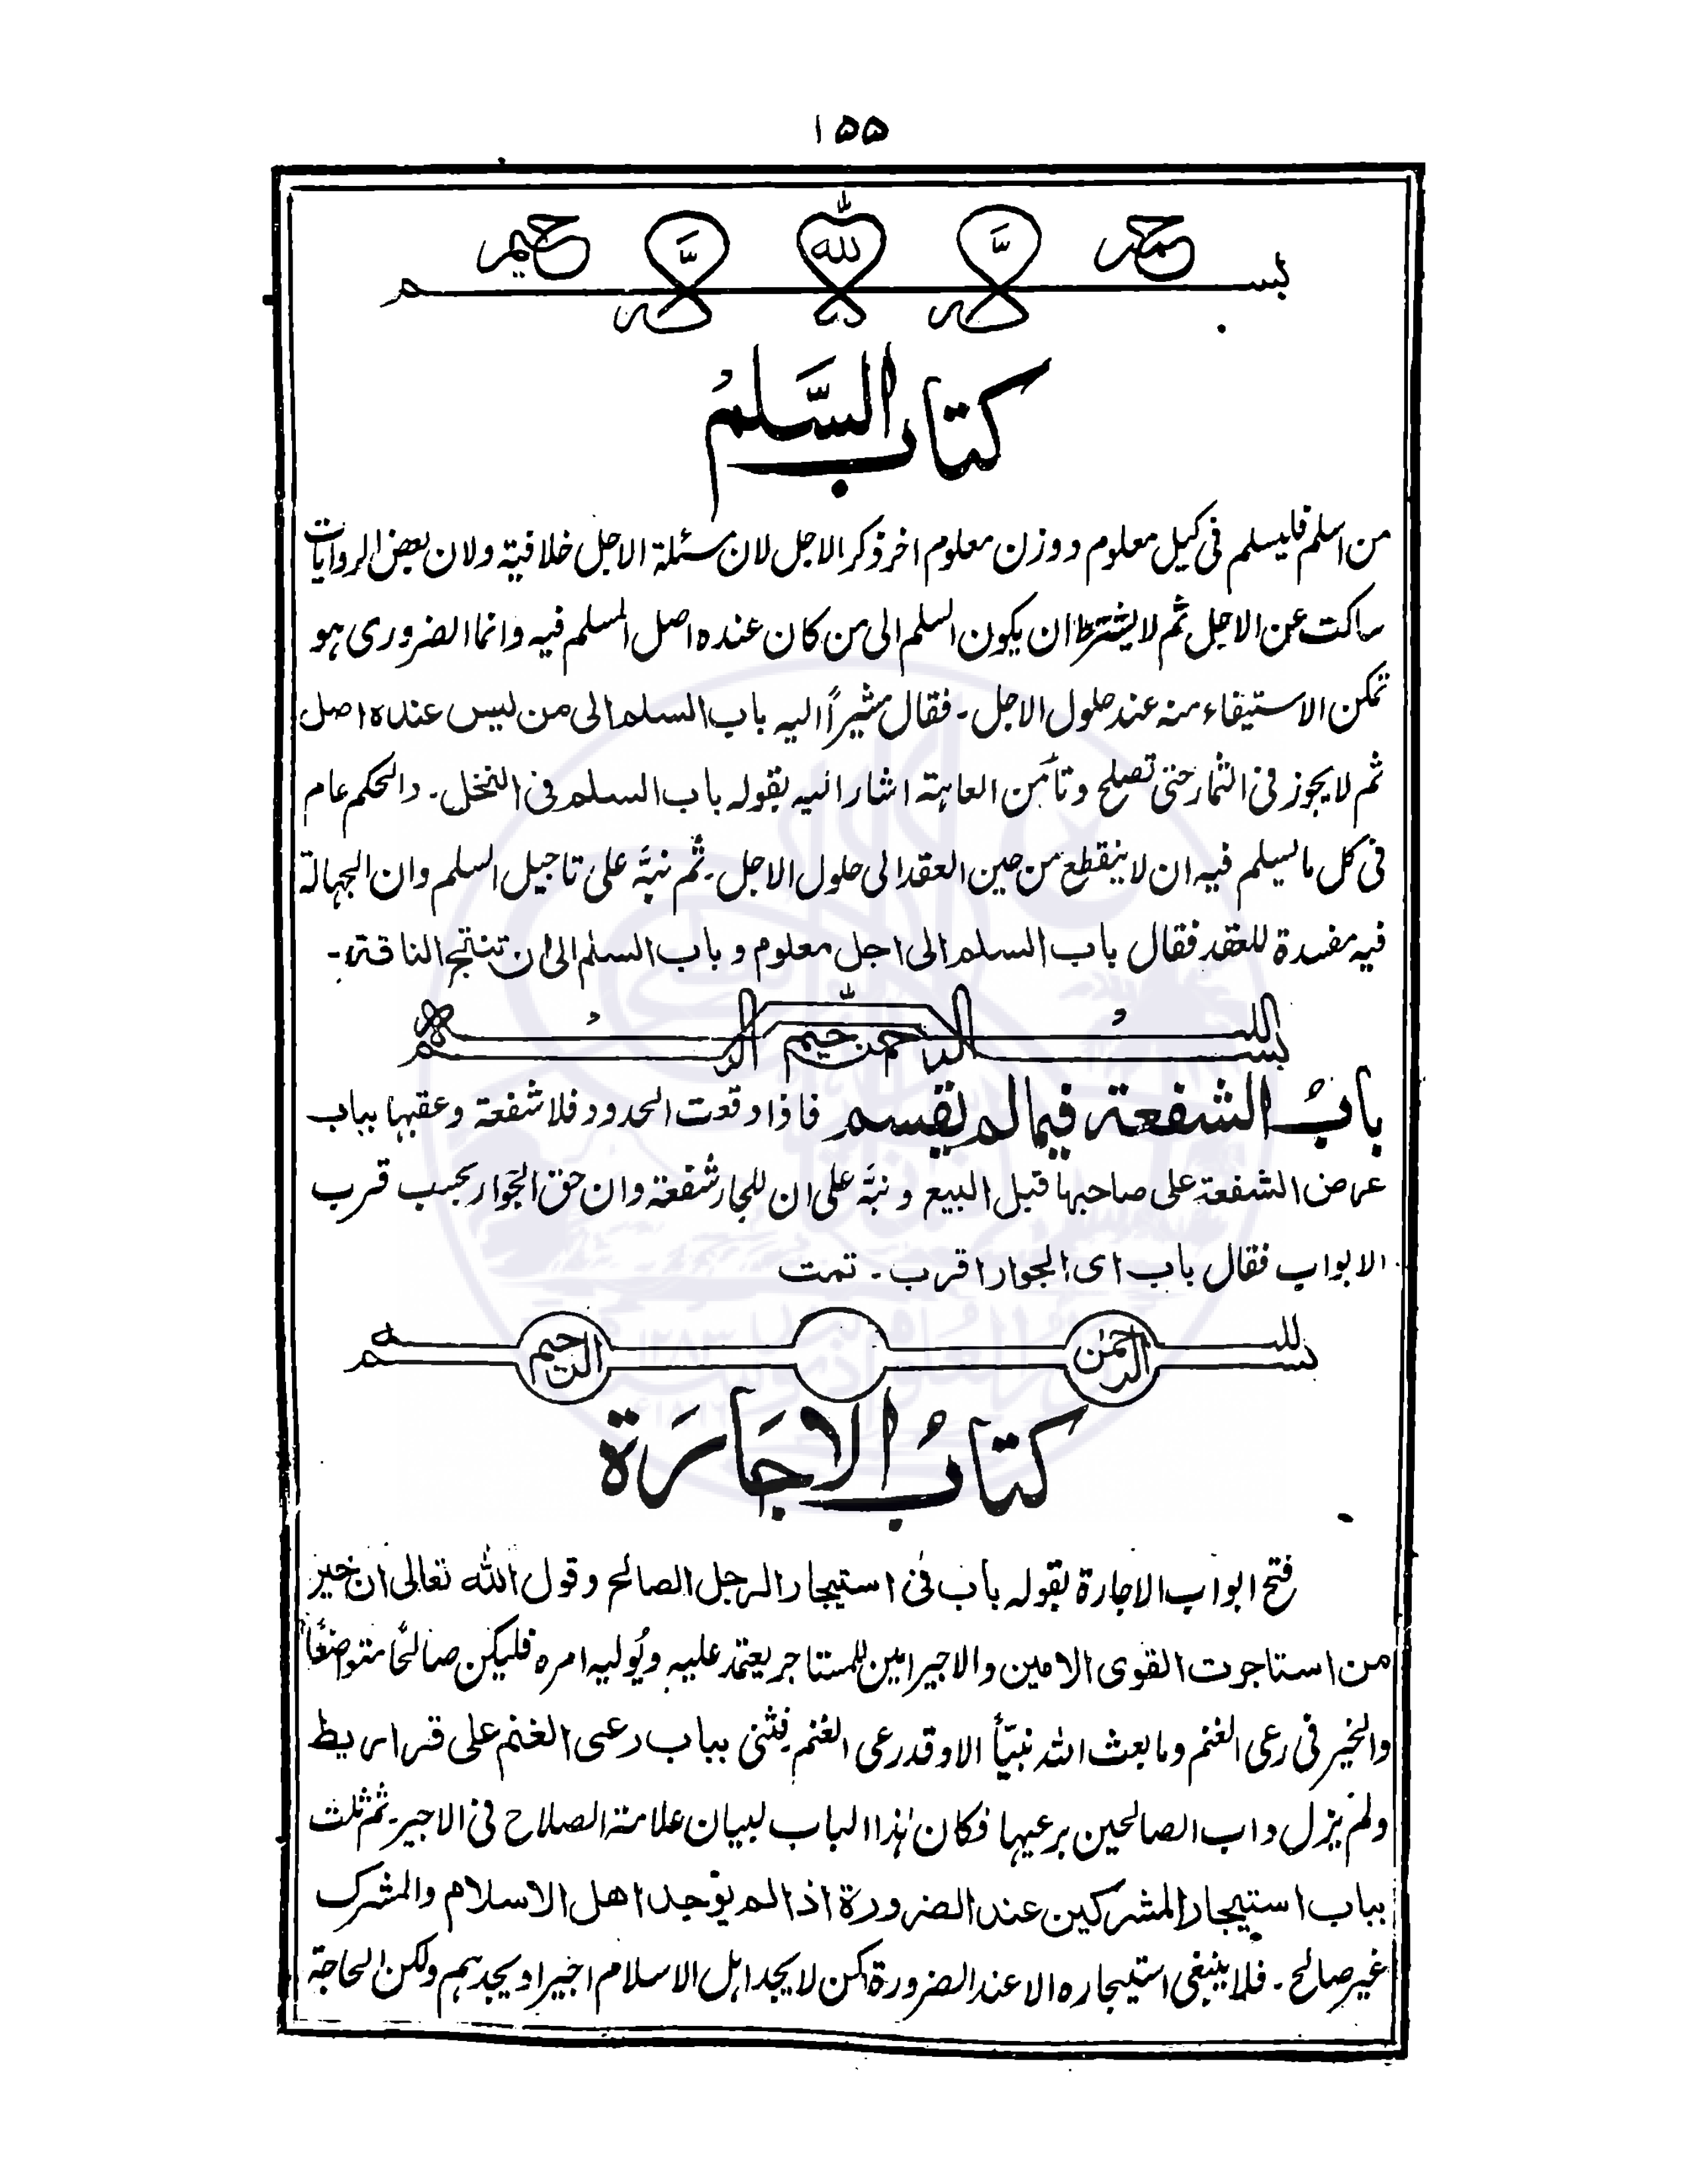 ۱۵۵
بسم الله الرحمن الرحيم
كتاب السَّلمُ
من اسلم فليسلم فى كيل معلوم ووزن معلوم اخر ذكر الاجل لان مسئلة الاجل خلافية ولان بعض الروايات
ساكت عن الاجل ثم لا يشترط ان يكون السلم الى من كان عنده اصل المسلم فيه وانما الضرورى هو
تمكن الاستيفاء منه عند حلول الاجل - فقال مشيراً اليه باب السلم الى من ليس عنده اصل
ثم لا يجوز فى الثمار حتى تصلح وتأمن العاهة اشار اليه بقوله باب السلم فى النخل - والحكم عام
فى كل ما يسلم فيه ان لا ينقطع من حين العقد الى حلول الاجل - ثم نبَّه على تاجيل السلم وان الجهالة
فيه مفسدة للعقد فقال باب السلم الى اجل معلوم و باب السلم الى ان تنتج الناقة -
بسم الله الرحمن الرحيم
بابُ الشفعة فيما لم يقسم فاذا وقعت الحدود فلا شفعة وعقبها بباب
عرض الشفعة على صاحبها قبل البيع ونبَّه على ان للجار شفعة وان حق الجوار بحسب قرب
الابواب فقال باب اى الجوار اقرب - تمت
بسم الله الرحمٰن الرحيم
كتابُ الاجَارَة
فتح ابواب الاجارة بقوله باب فى استيجار الرجل الصالح وقول الله تعالى ان خير
من استاجرت القوى الامين والاجير امين للمستاجر يعتمد عليه ويُوليه امره فليكن صالحًا متواضعًا
والخير فى رعى الغنم وما بعث الله نبيّاً الا وقد رعى الغنم فثنى بباب رعى الغنم على قراريط
ولم يزل داب الصالحين برعيها فكان هٰذا الباب لبيان علامة الصلاح فى الاجير - ثم ثلث
بباب استيجار المشركين عند الضرورة اذا لم يوجد اهل الاسلام والمشرك
غير صالح - فلا ينبغى استيجاره الا عند الضرورة كمن لا يجد اهل الاسلام اجيرا ويجدهم ولكن الحاجة